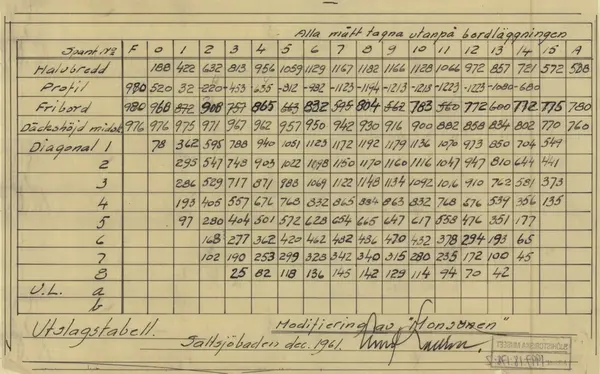 Alla mått tagna utanpå bordläggningen
Spant. Nº F 0 1 2 3 4 5 6 7 8 9 10 11 12 13 14 15 A
Halvbredd 188 422 632 813 956 1059 1129 1167 1182 1166 1128 1066 972 857 721 572 508
Profil 980 520 32 -220 -453 -635 -812 -982 -1123 -1194 -1213 -1218 -1223 -1223 -1080 -680
Fribord 980 960 872 908 757 865 832 804 783 772 600 712 775 780
Däckshöjd midsk. 976 976 975 971 967 962 957 950 942 930 916 900 882 858 834 802 770 760
Diagonal 1 78 362 595 788 940 1051 1123 1172 1192 1179 1136 1070 973 850 704 549
2 295 547 748 903 1022 1098 1150 1170 1160 1116 1047 947 810 644 441
3 286 529 717 871 988 1069 1122 1148 1134 1092 1016 910 762 581 373
4 193 405 557 676 768 832 865 884 863 832 768 676 539 356 135
5 97 280 404 501 572 628 654 665 647 617 558 476 351 177
6 168 277 362 420 462 482 486 470 432 378 294 193 65
7 102 190 253 299 328 342 340 315 280 235 172 100 45
8 25 82 118 136 145 142 129 114 94 70 42
U.L. a
b
Utslagstabell. Modifiering av "Monsunen"
Saltsjöbaden dec. 1961.